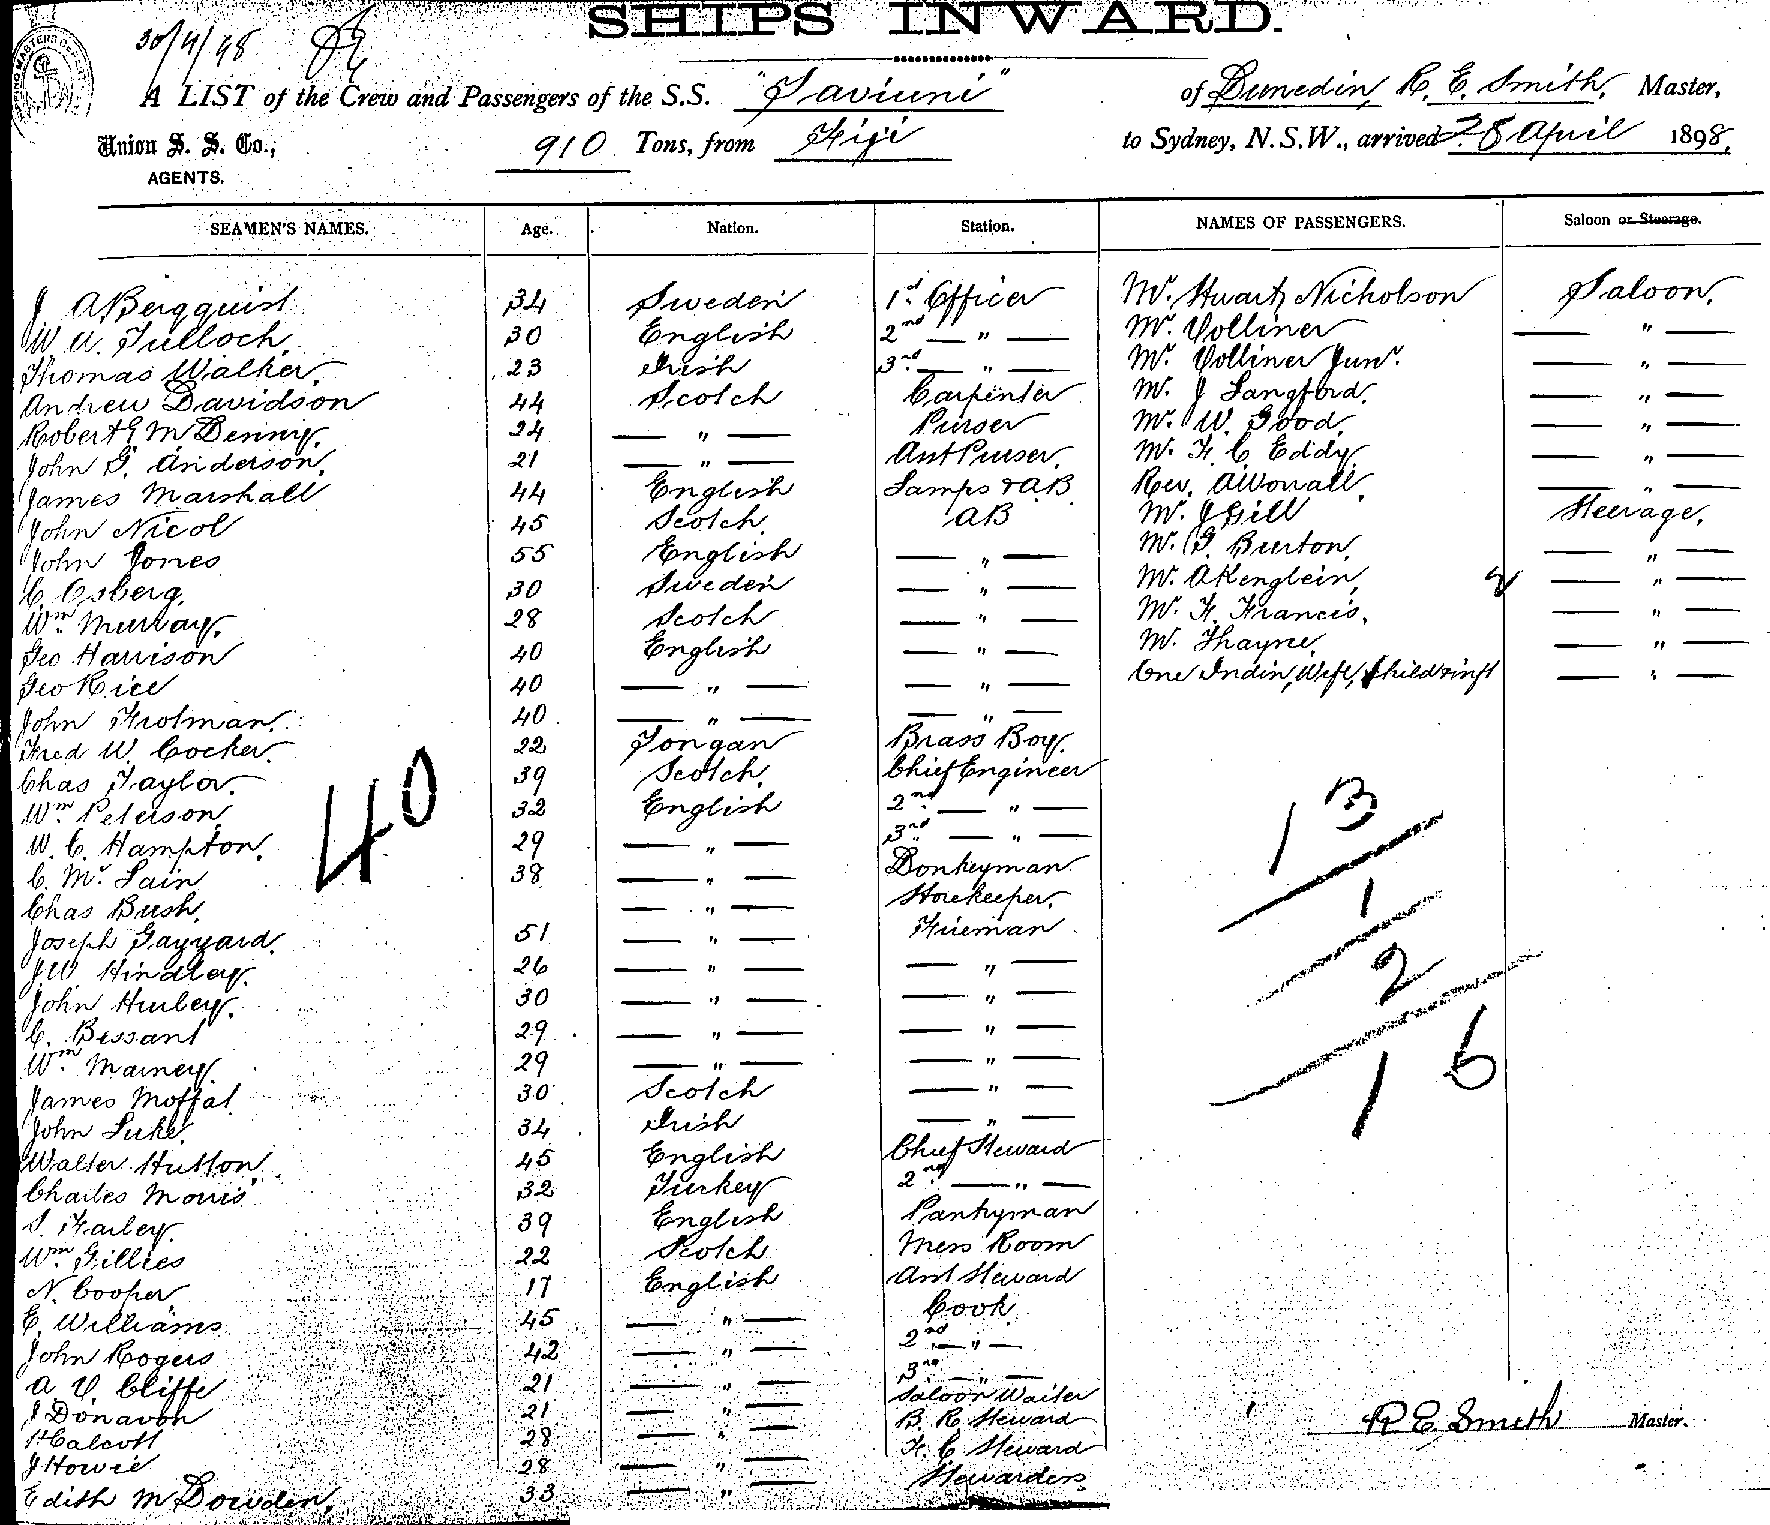 SHIPS INWARD.
30/4/98
A LIST of the Crew and Passengers of the S.S. "Taviuni" of Dunedin, R. E. Smith, Master,
Union S. S. Co., 910 Tons, from Fiji to Sydney, N.S.W., arrived 28 April 1898,
AGENTS.
SEAMEN'S NAMES. Age. Nation. Station. NAMES OF PASSENGERS. Saloon or Steerage.
J A Bergquist 34 Sweden 1st Officer Mr. Stuart Nicholson Saloon.
W U. Tulloch. 30 English 2nd — " — Mr. Volliner — " —
Thomas Walker. 23 Irish 3rd — " — Mr. Volliner Junr. — " —
Andrew Davidson 44 Scotch Carpenter Mr. J Langford. — " —
Robert G McDenny. 24 — " — Purser Mr. W. Good. — " —
John G. Anderson. 21 — " — Asst Purser. Mr. F. C. Eddy — " —
James Marshall 44 English Lamps & AB Rev. — " —
John Nicol 45 Scotch AB Mr. J Gill Steerage.
John Jones 55 English — " — Mr. G. Burton. — " —
C. Osberg. 30 Sweden — " — Mr. A Kenglein, — " —
Wm. Murray. 28 Scotch — " — Mr. F. Francis. — " —
Geo Harrison 40 English — " — Mr. Thayne. — " —
Geo Rice 40 — " — — " — One Indin, Wife, Child & inft — " —
John Frotman. 40 — " — — " —
Fred W. Cocker. 22 Tongan Brass Boy.
Chas Taylor. 39 Scotch. Chief Engineer
Wm. Peterson 32 English 2nd — " —
W. C. Hampton. 29 — " — 3rd — " —
C. Mc. Lain 38 — " — Donkeyman
Chas Bush. — " — Storekeeper.
Joseph Gayyard. 51 — " — Fireman
J.W. Hindley. 26 — " — — " —
John Hurley. 30 — " — — " —
C. Bessant 29 — " — — " —
Wm. Mainey. 29 — " — — " —
James Moffat 30 Scotch — " —
John Luke. 34 Irish — " —
Walter Hutton. 45 English Chief Steward
Charles Morris 32 Turkey 2nd — " —
S. Farley. 39 English Pantryman
Wm. Gillies 22 Scotch Mess Room
N. Cooper 17 English Asst Steward
E. Williams 45 — " — Cook
John Rogers 42 — " — 2nd — " —
A. V. Cliffe 21 — " — 3rd — " —
J Donavon 21 — " — Saloon Waiter
H Calcott 28 — " — B. R. Steward
J Howie 28 — " — F. C. Steward
Edith McDowden. 33 — " — Stewardess
40
13
1
2
16
R E. Smith Master.